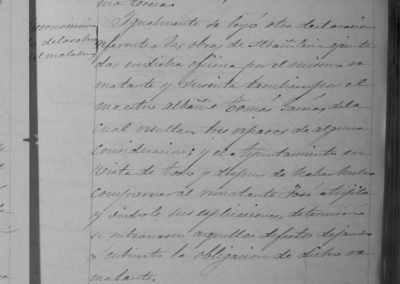 Igualmente se leyó otra declaracion
referente a las obras de Albañileria ejecuta
das en dicha oficina por el mismo re
matante y suscrita tambien por el
maestro albañil Tomás de la
cual resultan tres reparos de alguna
consideracion; y el Ayuntamiento en
vista de todo y despues de haber hecho
comparecer al rematante José
y oidole sus esplicaciones, determinó
se subsanasen aquellos defectos dejando
a cubierto la obligacion de dicho re
matante.
Reconocimiento
de las obras
el matadero